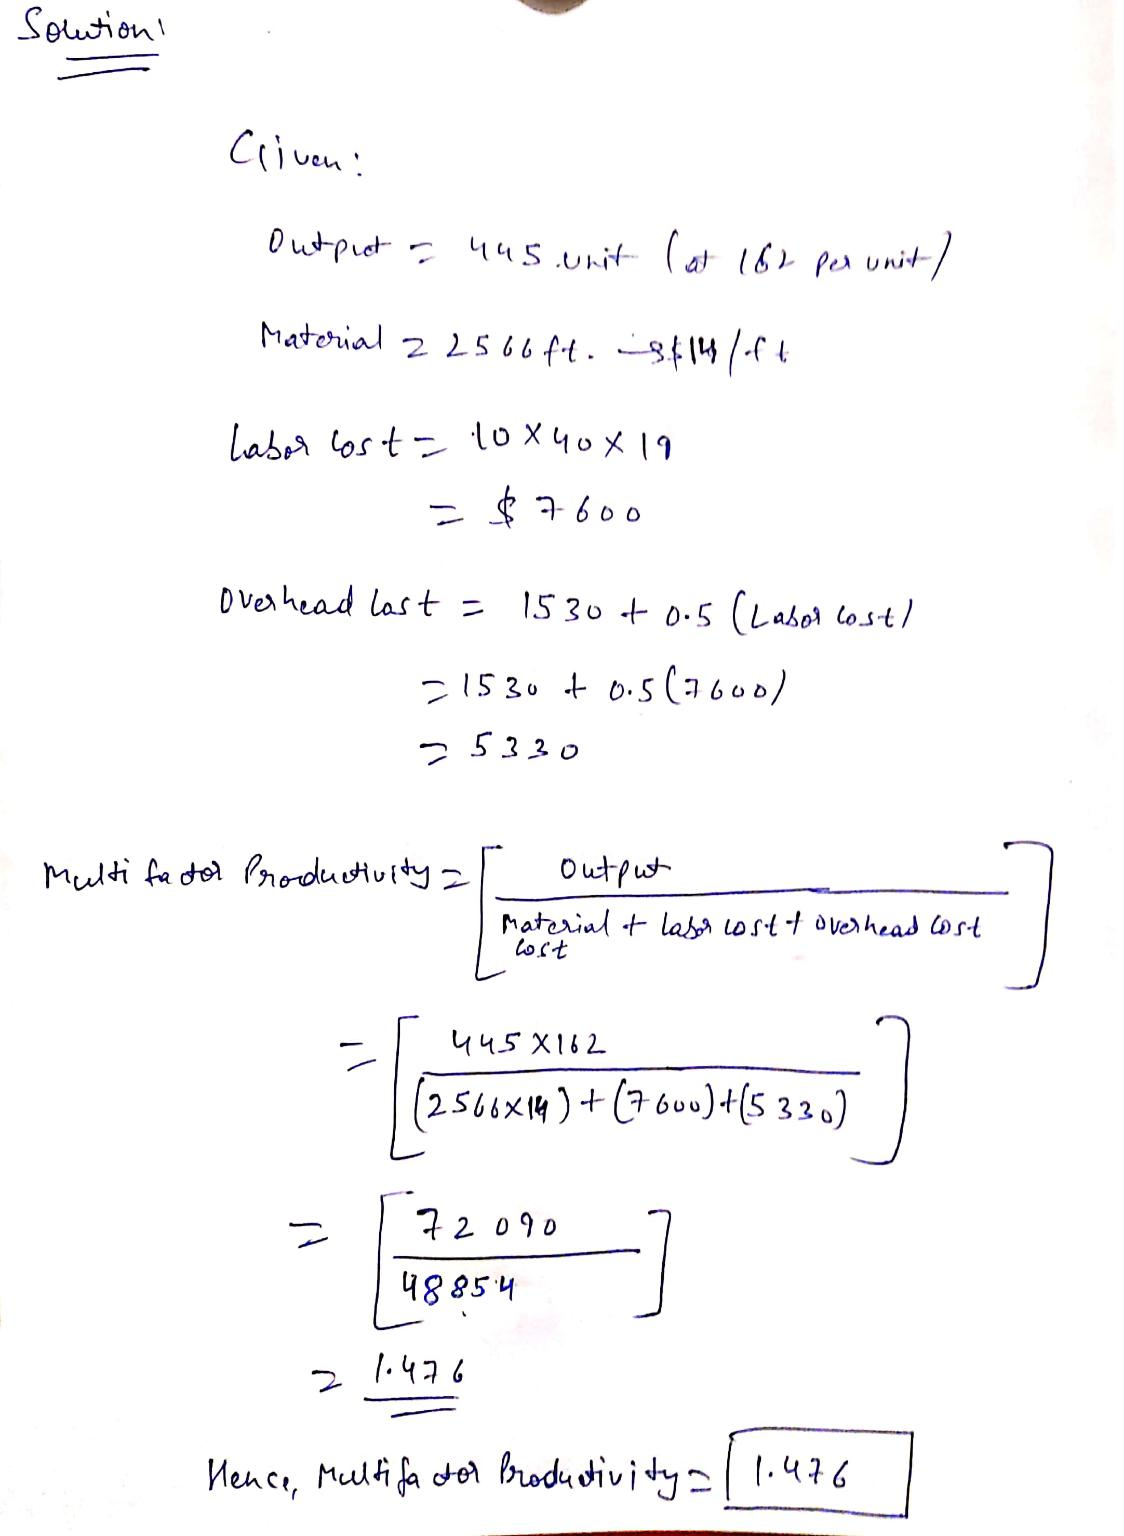 Solution:
Given:
Output = 445 unit (at 162 per unit)
Material = 2566 ft. $14/ft
Labor cost = 10 X 40 X 19
= $ 7600
Overhead cost = 1530 + 0.5 (Labor cost)
= 1530 + 0.5 (7600)
= 5330
Multi factor Productivity = [ Output
Material + labor cost + overhead cost
cost ]
= [ 445 X 162
(2566 X 14) + (7600) + (5330) ]
= [ 72 090
48854 ]
= 1.476
Hence, Multifactor Productivity = 1.476